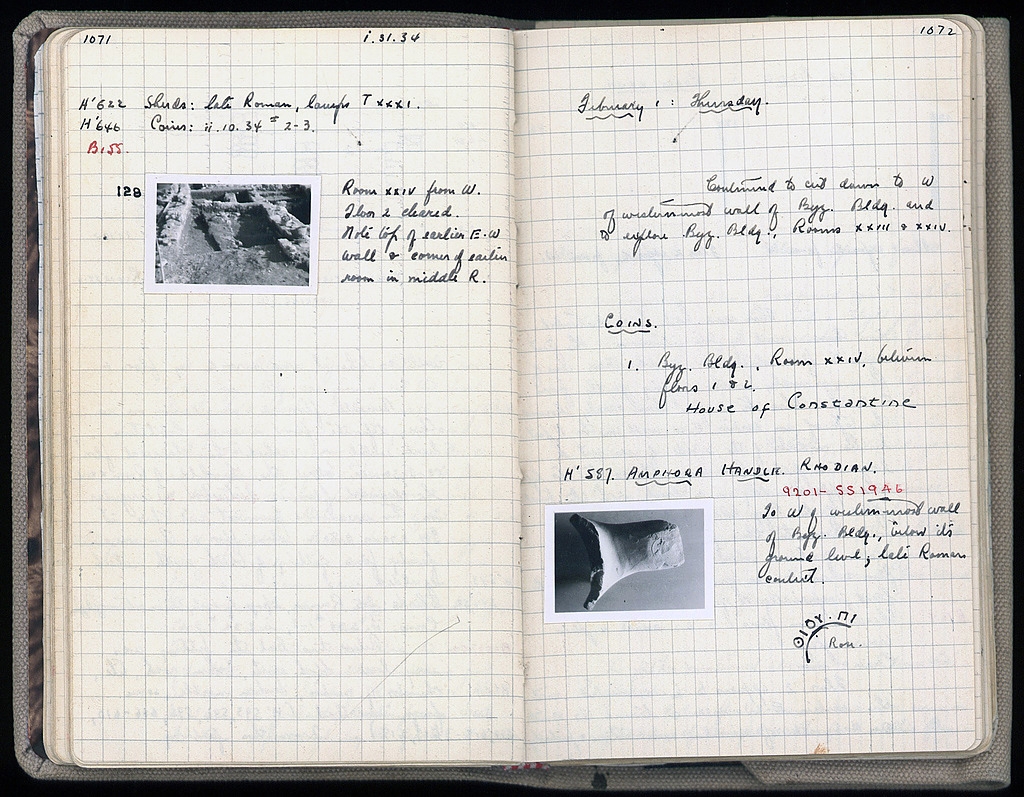 1071
i.31.34
H'622 Sherds: late Roman, lamps T XXXI.
H'646 Coins: ii.10.34 # 2-3.
B155.
128
Room XXIV from W.
Floor 2 cleared.
Note top of earlier E-W
wall & corner of earlier
room in middle R.
1072
February 1: Thursday.
Continued to cut down to W
of western-most wall of Byz. Bldg. and
to explore Byz. Bldg., Rooms XXIII & XXIV.
COINS.
1. Byz. Bldg., Room XXIV, between
floors 1 & 2.
House of Constantine
H'587. AMPHORA HANDLE. RHODIAN.
9201- SS1946
To W of western-most wall
of Byz. Bldg., below its
ground level; late Roman
context.
Rose.